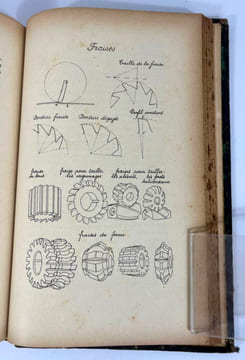 Fraises
Taille de la fraise
Denture fraisée
Denture dégagée
Profil constant
fraise
fraise pour tailler
les engrenages
fraises pour tailler
les alésoirs,
les forêts
hélicoïdaux
fraises de forme